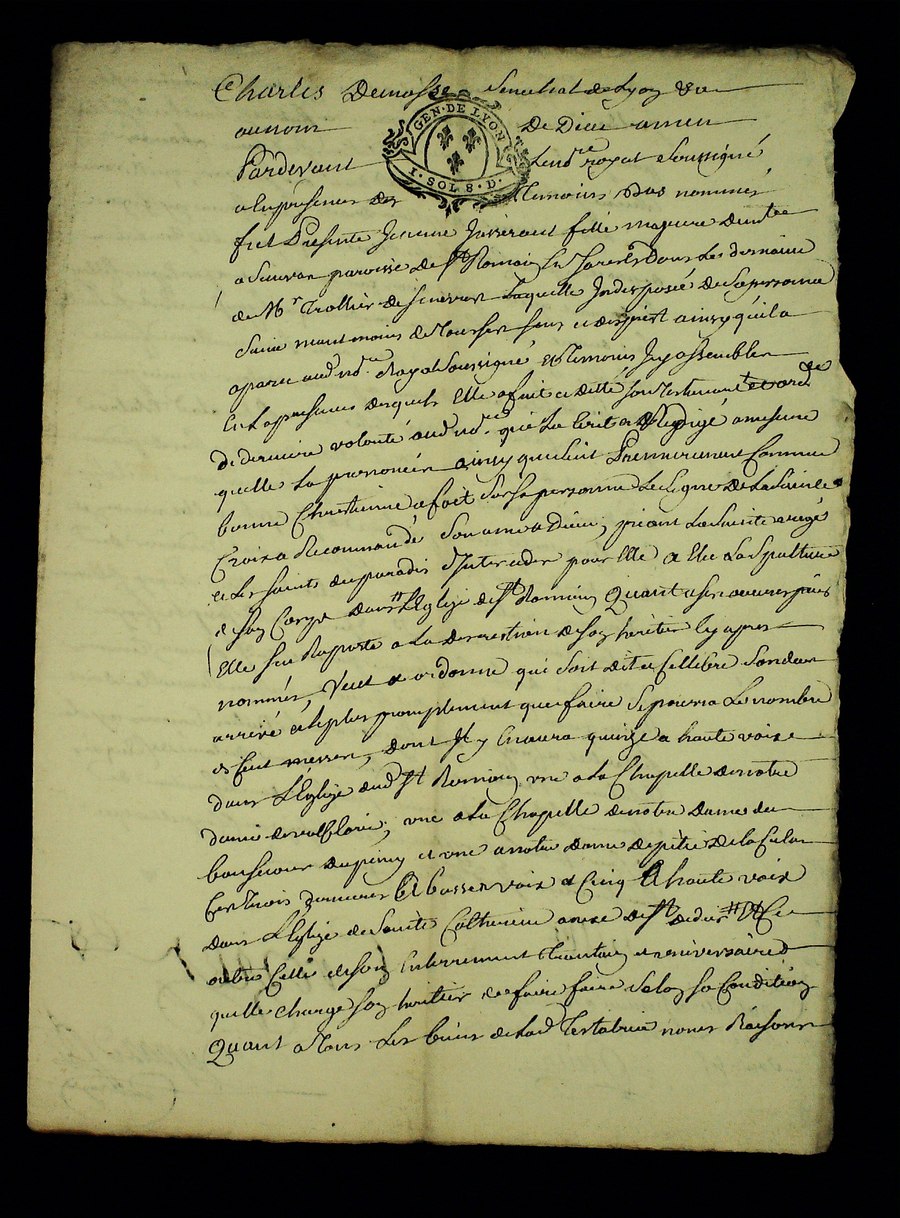 Charles Demasse Senechal de Lyon
GEN·DE LYON
I·SOL 8·D·
au nom De Dieu amen
Pardevant Le nore royal Soussigné
a la presence des Temoins bas nommés
fut Presente Jeanne Jasserant fille majeure
a Senevas paroisse de St Romain En Jarest Dans Le domaine
de Mr Trollier de Senevas Laquelle Indisposée de Sa personne
Saine neantmoins de Tous ses sens et desprit ainsy quil a
aparu aud nore Royal Soussigné et Temoins Icy assemblés
En La presence desquels Elle a fait et dicté son testament et ordce
de derniere volonté aud nore qui La Ecrit et Redigé a mesure
quelle La prononcé ainsy que Suit Premierement Comme
bonne Chrestienne a fait Sur Sa personne Le Signe de La Sainte
Croix a Recommandé Son ame a Dieu, priant La Sainte vierge
et Les Saints du paradis d'Interceder pour Elle a Elu La Spulture
de Son Corps dans L'Eglize de St Romain, Quant a ses oeuvres pies
Elle sen Raporte a La discrestion de Son heritier Cy apres
nommés, Veut et ordonne qui Soit dit et Cellebré
arrivé et le plus promptement que faire Se pourra Le nombre
de Cent messes, dont Il y En aura quinze a haute voix
dans L'Eglize dud St Romain, une a La Chapelle de notre
dame de, une a La Chapelle de notre Dame de
bonsecour et une a notre dame de pitié de La
Ces Trois dernieres a basse voix et Cinq a haute voix
dans L'Eglize de Sainte Catherine
outre Celles de Son Enterrement Trantain et aniversaire
quelle charge Son heritier de faire faire Selon Sa Condition
Quant a Tous Les biens de Lad Testatrice noms Raisons